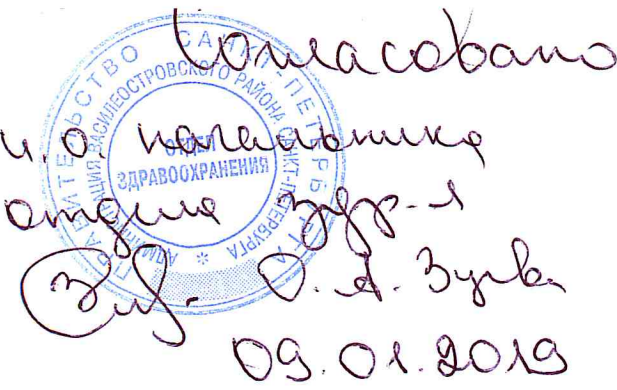 Согласовано
и.о. начальника
отдела здр-я
О.А. Зуева
09.01.2019
ПРАВИТЕЛЬСТВО САНКТ-ПЕТЕРБУРГА
АДМИНИСТРАЦИЯ ВАСИЛЕОСТРОВСКОГО РАЙОНА САНКТ-ПЕТЕРБУРГА
ОТДЕЛ
ЗДРАВООХРАНЕНИЯ